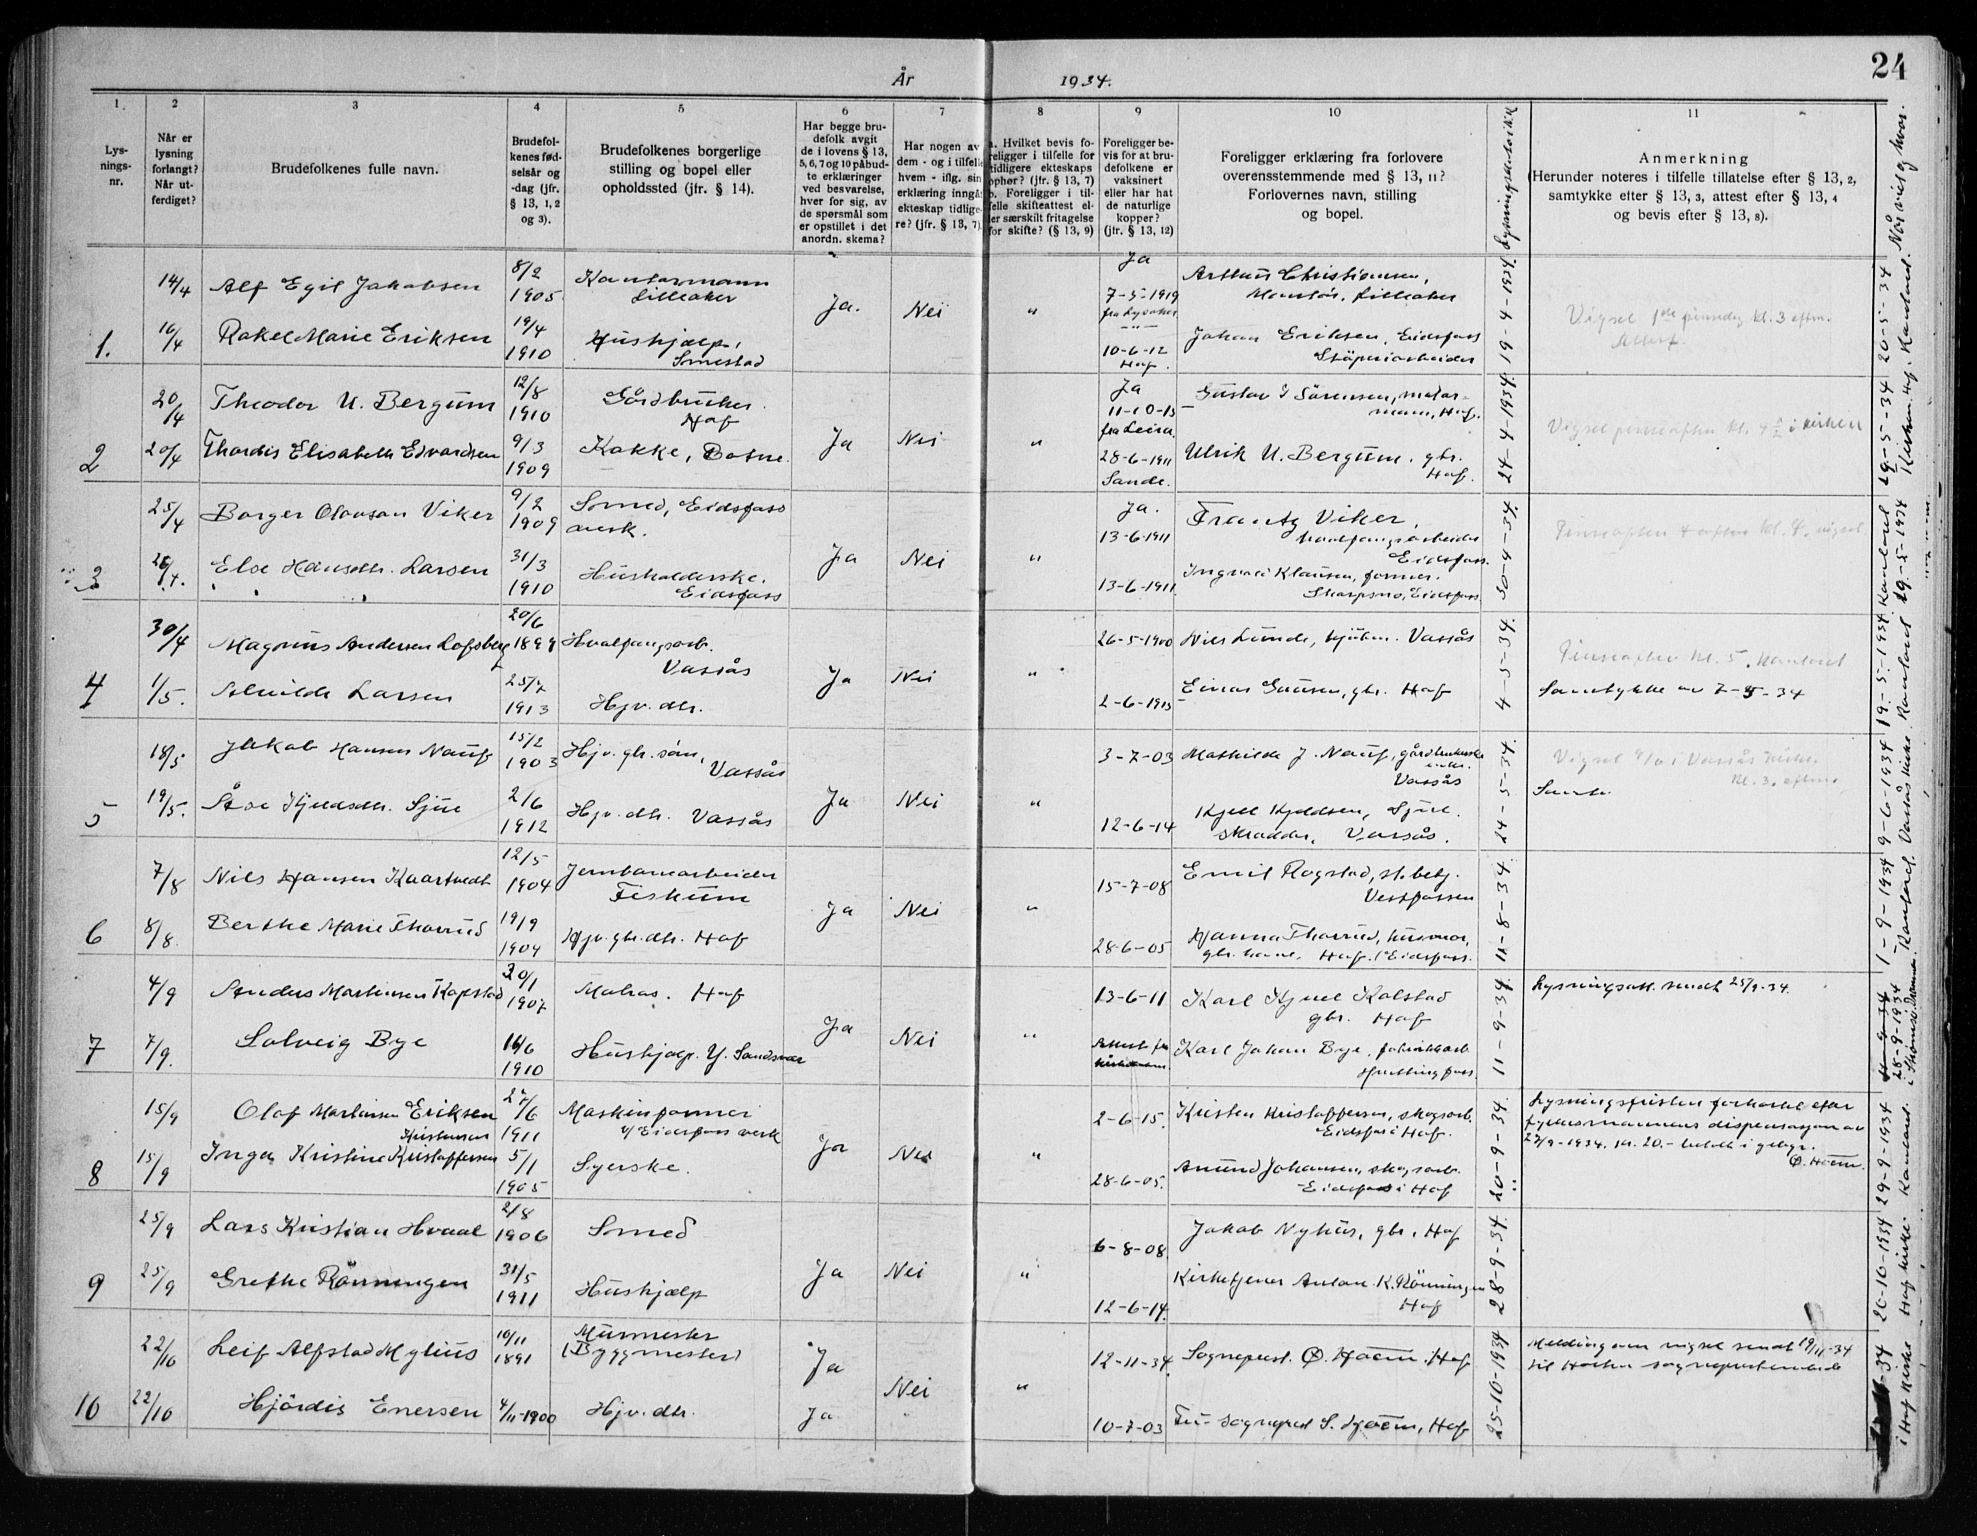 24
År 1934.
1.
Lys-
nings-
nr.
2
Når er
lysning
forlangt?
Når ut-
ferdiget?
3
Brudefolkenes fulle navn.
4
Brudefol-
kenes fød-
selsår og
-dag (jfr.
§ 13, 1, 2
og 3).
5
Brudefolkenes borgerlige
stilling og bopel eller
opholdssted (jfr. § 14).
6
Har begge bru-
defolk avgit
de i lovens § 13,
5, 6, 7 og 10 påbud-
te erklæringer
ved besvarelse,
hver for sig, av
de spørsmål som
er opstillet i det
anordn. skema?
7
Har nogen av
dem - og i tilfelle
hvem - iflg. sin
erklæring inngå
ekteskap tidlige-
re? (jfr. § 13, 7)
8
a. Hvilket bevis fo-
religger i tilfelle for
tidligere ekteskaps
ophør? (jfr. § 13, 7)
b. Foreligger i til-
felle skifteattest el-
ler særskilt fritagelse
for skifte? (§ 13, 9)
9
Foreligger be-
vis for at bru-
defolkene er
vaksinert
eller har hat
de naturlige
kopper?
(jfr. § 13, 12)
10
Foreligger erklæring fra forlovere
overensstemmende med § 13, 11?
Forlovernes navn, stilling
og bopel.
11
Anmerkning
(Herunder noteres i tilfelle tillatelse efter § 13, 2,
samtykke efter § 13, 3, attest efter § 13, 4
og bevis efter § 13, 8).
Når viet og hvor.
1.
14/4 Alf Egil Jakobsen 8/2 1905 Kontormann
Lilleaker
Ja. Nei "
Ja
7-5-1919
fra Lysaker
Arthur Christiansen,
Lilleaker
19-4-1934.
16/4 Rakel Marie Eriksen 19/4 1910 Hushjælp,
Smestad
10-6-12
Hof.
Johan Eriksen, Eidsfoss
Støperiarbeider
Vigsel 1ste pinsedag kl. 3 eftm.
Attest
20-5-34
2
20/4 Theodor U. Bergum 12/8 1910 Gårdbruker
Hof
Ja Nei "
Ja
11-10-15
fra Leira.
Gustav I Sörensen, malar-
mann, Hof.
24-4-1934.
20/4 Thordis Elisabeth Edvardsen 9/3 1909 Kokke, Botne.
28-6-1911
Sande.
Ulrik U. Bergum. gbr.
Hof.
19-5-34
3
25/4 Borger Olavson Viker 9/2 1909 Smed, Eidsfoss
verk.
Ja Nei "
Ja.
13-6-1911
Frantz Viker,
Eidsfoss.
30-4-34.
Else Hansdtr. Larsen 31/3 1910 Husholderske.
Eidsfoss
13-6-1911.
Ingvald Klausen, former.
Eidsfoss.
19-5-1934
4
30/4 Magnus Andersen Lofsberg 20/6 1899 Hvalfangsarb.
Vassås
Ja Nei "
26-5-1900 Nils Lunde, Vassås
4-5-34.
1/5. Alvilde Larsen 25/7 1913 Hjv. dtr.
2-6-1915
Einar Gausen, gbr. Hof
Pinseaften kl. 5.
Samtykke av 7-5-34
19-5-1934
5
18/5 Jakob Hansen Nauf 15/2 1903 Hjv. gbr. søn,
Vassås
Ja Nei "
3-7-03 Mathilde J. Nauf, gårdbrukerske
Vassås
24-5-34.
19/5. Åse Kjeldsdtr. Sjue 2/6 1912 Hjv. dtr. Vassås
12-6-14
Kjell Kjeldsen, Sjue.
Skrædder, Vassås.
Vigsel 9/6 i Vassås kirke
kl. 3. eftm.
9-6-1934
6
7/8 Nils Hansen Kaartvedt 12/5 1904 Jernbanearbeider
Fiskum
Ja Nei "
15-7-08
Emil Rogstad, st. betj.
Vestfossen
11-8-34.
8/8. Berthe Marie Thorrud 19/9 1904 Hjv. gbr. dtr. Hof
28-6-05
Hanna Thorrud, husmor,
Hof. (Eidsfoss.
1-9-1934
7
4/9 Anders Martinsen Kopstad 30/1 1907 Hof
Ja Nei "
13-6-11
Karl Hjuel Kolstad
gbr. Hof
11-9-34.
7/9. Solveig Bye 16/6 1910 Hushjælp. Y. Sandsvær
Attest fra
Karl Johan Bye, fabrikkarb.
Lysningsatt. sendt 25/9-34.
28-9-1934
8
15/9 Olaf Martinsen Eriksen 27/6 1911 Maskinformer
v/ Eidsfoss verk
Ja Nei "
2-6-15.
Kristen Kristoffersen, skogsarb.
Eidsfoss i Hof.
20-9-34.
15/9 Inga Kristine Kristoffersen 5/1 1905 Syerske.
28-6-05.
Amund Johansen, skogsarb.
Eidsfoss i Hof
Lysningsfristen forkortet efter
fylkesmannens dispensasjon av
27/9-1934. kr. 20.- betalt i gebyr.
Ø. Hoem.
29-9-1934
9
25/9 Lars Kristian Hvaal 2/8 1906 Smed
Ja Nei "
6-8-08.
Jakob Nyhus, gbr., Hof
28-9-34.
25/9 Grethe Rönningen 31/5 1911 Hushjælp
12-6-14.
Kirketjener Anton K. Rönningen
Hof
20-10-1934 Hof kirke.
10
22/10 Leif Alfstad Mylius 10/11 1891 Murmester
(Byggmester)
Ja Nei "
12-11-34.
Sogneprest. Ø. Hoem. Hof
25-10-1934
22/10 Hjördis Enersen 4/11-1900 Hjv. dtr.
Ja
10-7-03
Fru sogneprest S. Hoem, Hof
Melding om vigsel sendt 19/11-34
til Horten sogneprestembede
i Hof kirke